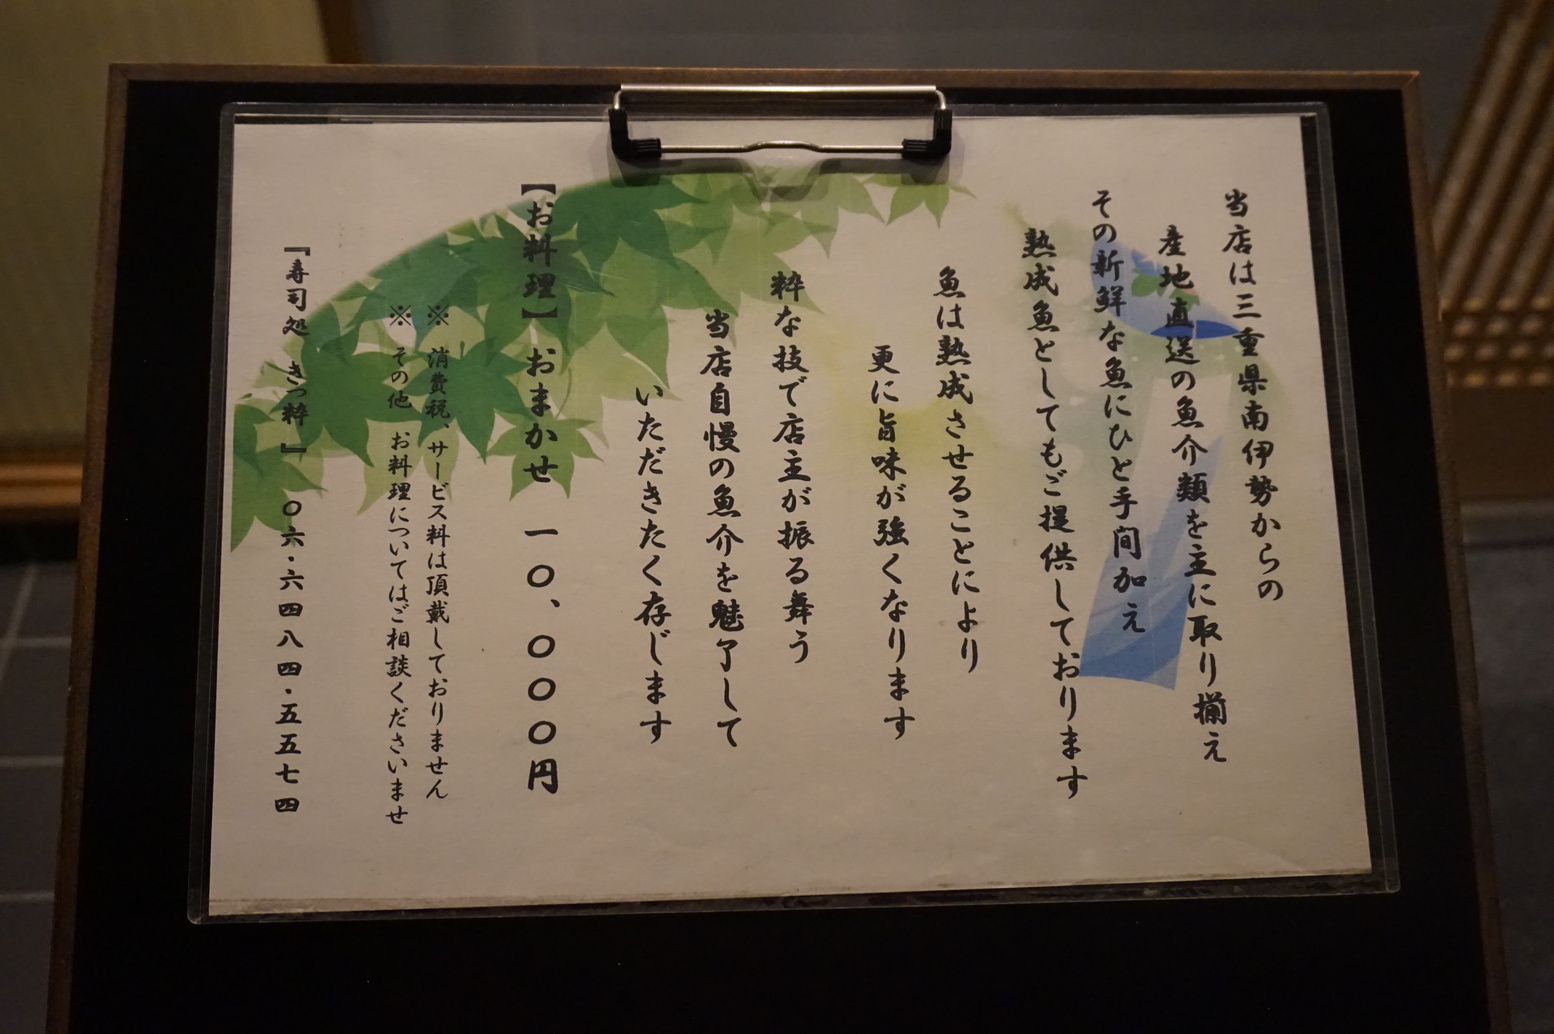 当店は三重県南伊勢からの
産地直送の魚介類を主に取り揃え
その新鮮な魚にひと手間加え
熟成魚としてもご提供しております
魚は熟成させることにより
更に旨味が強くなります
粋な技で店主が振る舞う
当店自慢の魚介を魅了して
いただきたく存じます
【お料理】 おまかせ 一〇、〇〇〇円
※ 消費税、サービス料は頂戴しておりません
※ その他 お料理についてはご相談くださいませ
『寿司処 きっ粋』 〇六・六四八四・五五七四